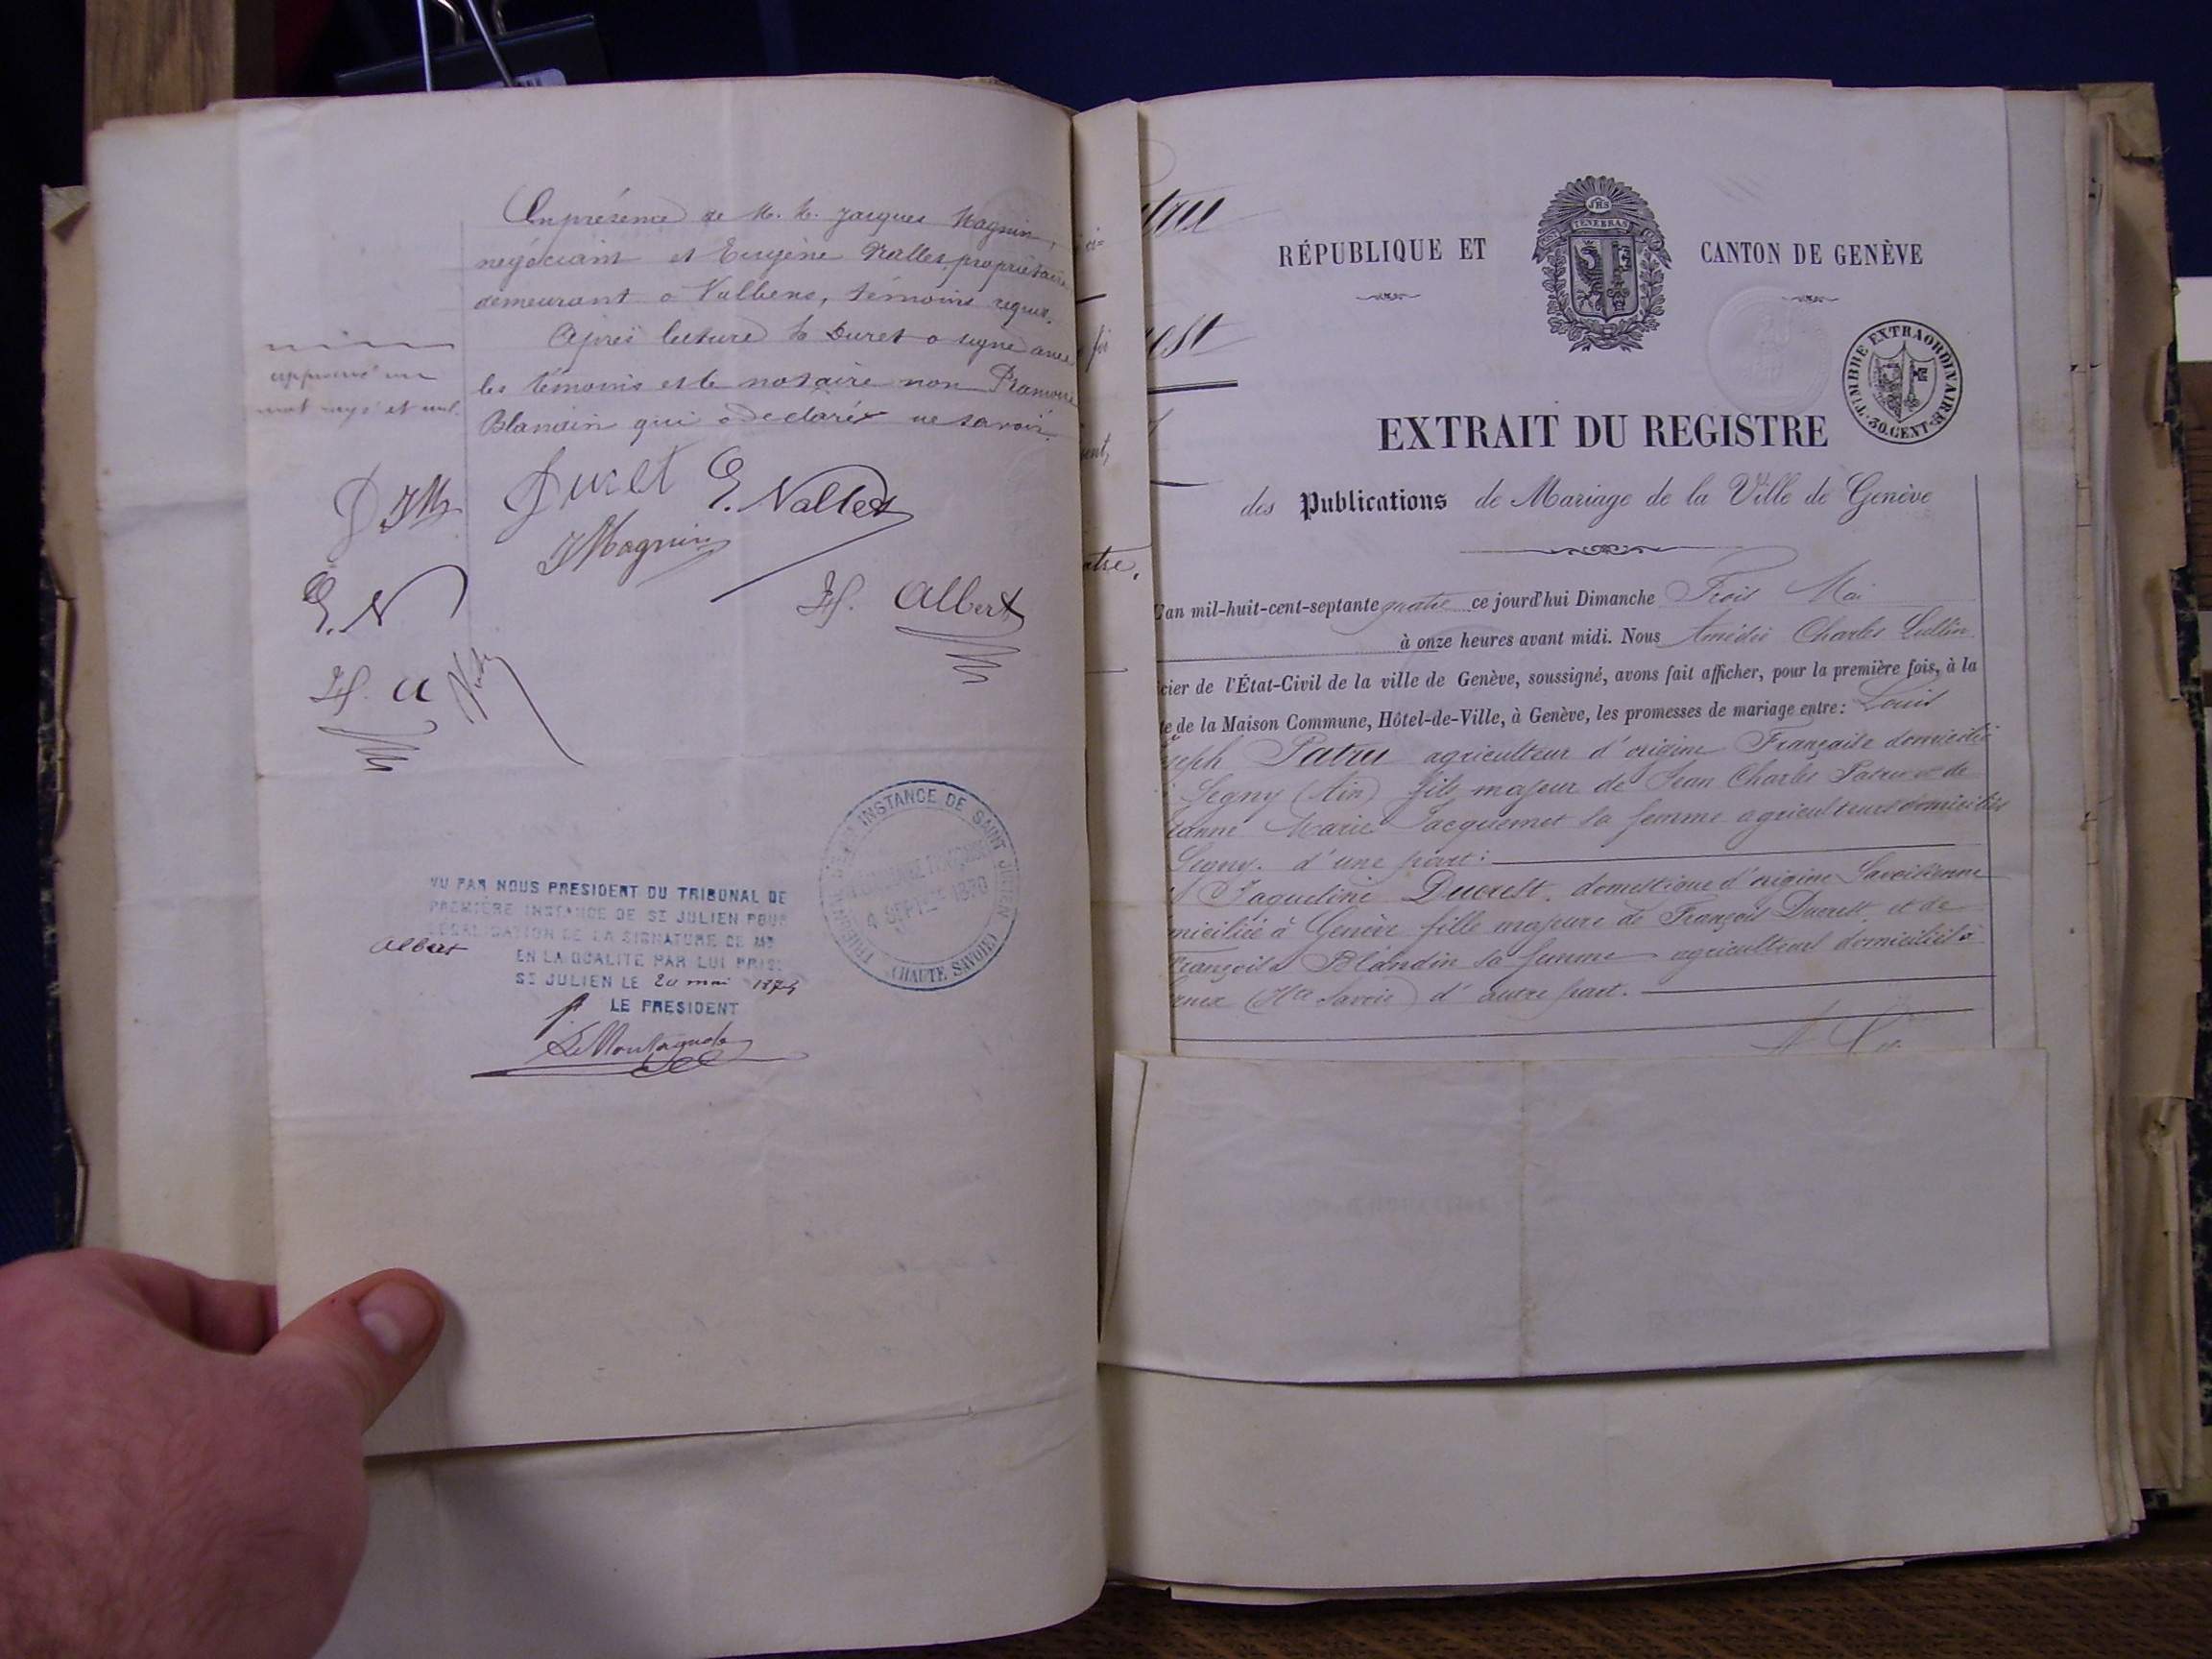 En présence de M. M. Jacques Magnin,
négociant et Eugène Nallet, propriétaire
demeurant à Valleiry, témoins requis.
Après lecture le Duret a signé avec
les témoins et le notaire non Françoise
Blandin qui a déclaré ne savoir.
approuvé un
mot rayé et nul.
Duret E. Nallet
JM
JMagnin
E. N
H. Albert
H. a
INSTANCE DE SAINT JULIEN
4 SEPT 1870
(HAUTE SAVOIE)
VU PAR NOUS PRESIDENT DU TRIBUNAL DE
PREMIÈRE INSTANCE DE ST JULIEN POUR
LEGALISATION DE LA SIGNATURE DE ME
Albert
EN LA QUALITE PAR LUI PRISE
ST JULIEN LE 20 mai 1874
LE PRESIDENT
tru
est
atre,
JHS
TENEBRAS
RÉPUBLIQUE ET CANTON DE GENÈVE
TIMBRE EXTRAORDINAIRE
30.CENT
EXTRAIT DU REGISTRE
des Publications de Mariage de la Ville de Genève
L'an mil-huit-cent-septante quatre ce jourd'hui Dimanche Trois Mai
à onze heures avant midi. Nous Amédée Charles Lullin
cier de l'État-Civil de la ville de Genève, soussigné, avons fait afficher, pour la première fois, à la
te de la Maison Commune, Hôtel-de-Ville, à Genève, les promesses de mariage entre: Louis
seph Patru agriculteur d'origine Française domicilié
Segny (Ain) fils majeur de Jean Charles Patru et de
eanne Marie Jacquemet sa femme agriculteurs domiciliés
Segny. d'une part:
Jaqueline Ducrest, domestique d'origine Savoisienne
miciliée à Genève fille majeure de François Ducrest et de
Françoise Blandin sa femme agriculteurs domiciliés à
(Hte Savoie) d'autre part.